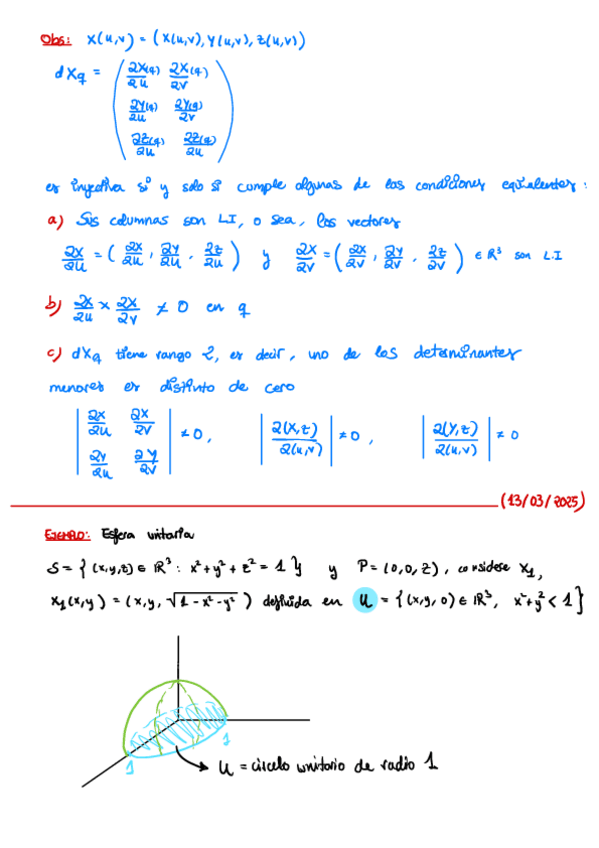 Obs: X(u,v) = (X(u,v), Y(u,v), Z(u,v))
dXq = ( ∂X(q)/∂u ∂X(q)/∂v
∂Y(q)/∂u ∂Y(q)/∂v
∂Z(q)/∂u ∂Z(q)/∂v )
es inyectiva si y solo si cumple algunas de las condiciones equivalentes:
a) Sus columnas son LI, o sea, los vectores
∂X/∂u = ( ∂X/∂u , ∂Y/∂u , ∂Z/∂u ) y ∂X/∂v = ( ∂X/∂v , ∂Y/∂v , ∂Z/∂v ) ∈ ℝ³ son L.I
b) ∂X/∂u × ∂X/∂v ≠ 0 en q
c) dXq tiene rango 2, es decir, uno de los determinantes
menores es distinto de cero
| ∂X/∂u ∂X/∂v
∂Y/∂u ∂Y/∂v | ≠ 0 , | ∂(X,Z)/∂(u,v) | ≠ 0 , | ∂(Y,Z)/∂(u,v) | ≠ 0
(13/03/2025)
EJEMPLO: Esfera unitaria
S = { (x,y,z) ∈ ℝ³ : x² + y² + z² = 1 } y P = (0,0,Z), considere X₁,
X₁(x,y) = (x,y, √(1 - x² - y²)) definida en U = { (x,y,0) ∈ ℝ³, x²+y² < 1 }
1
1
U = círculo unitario de radio 1